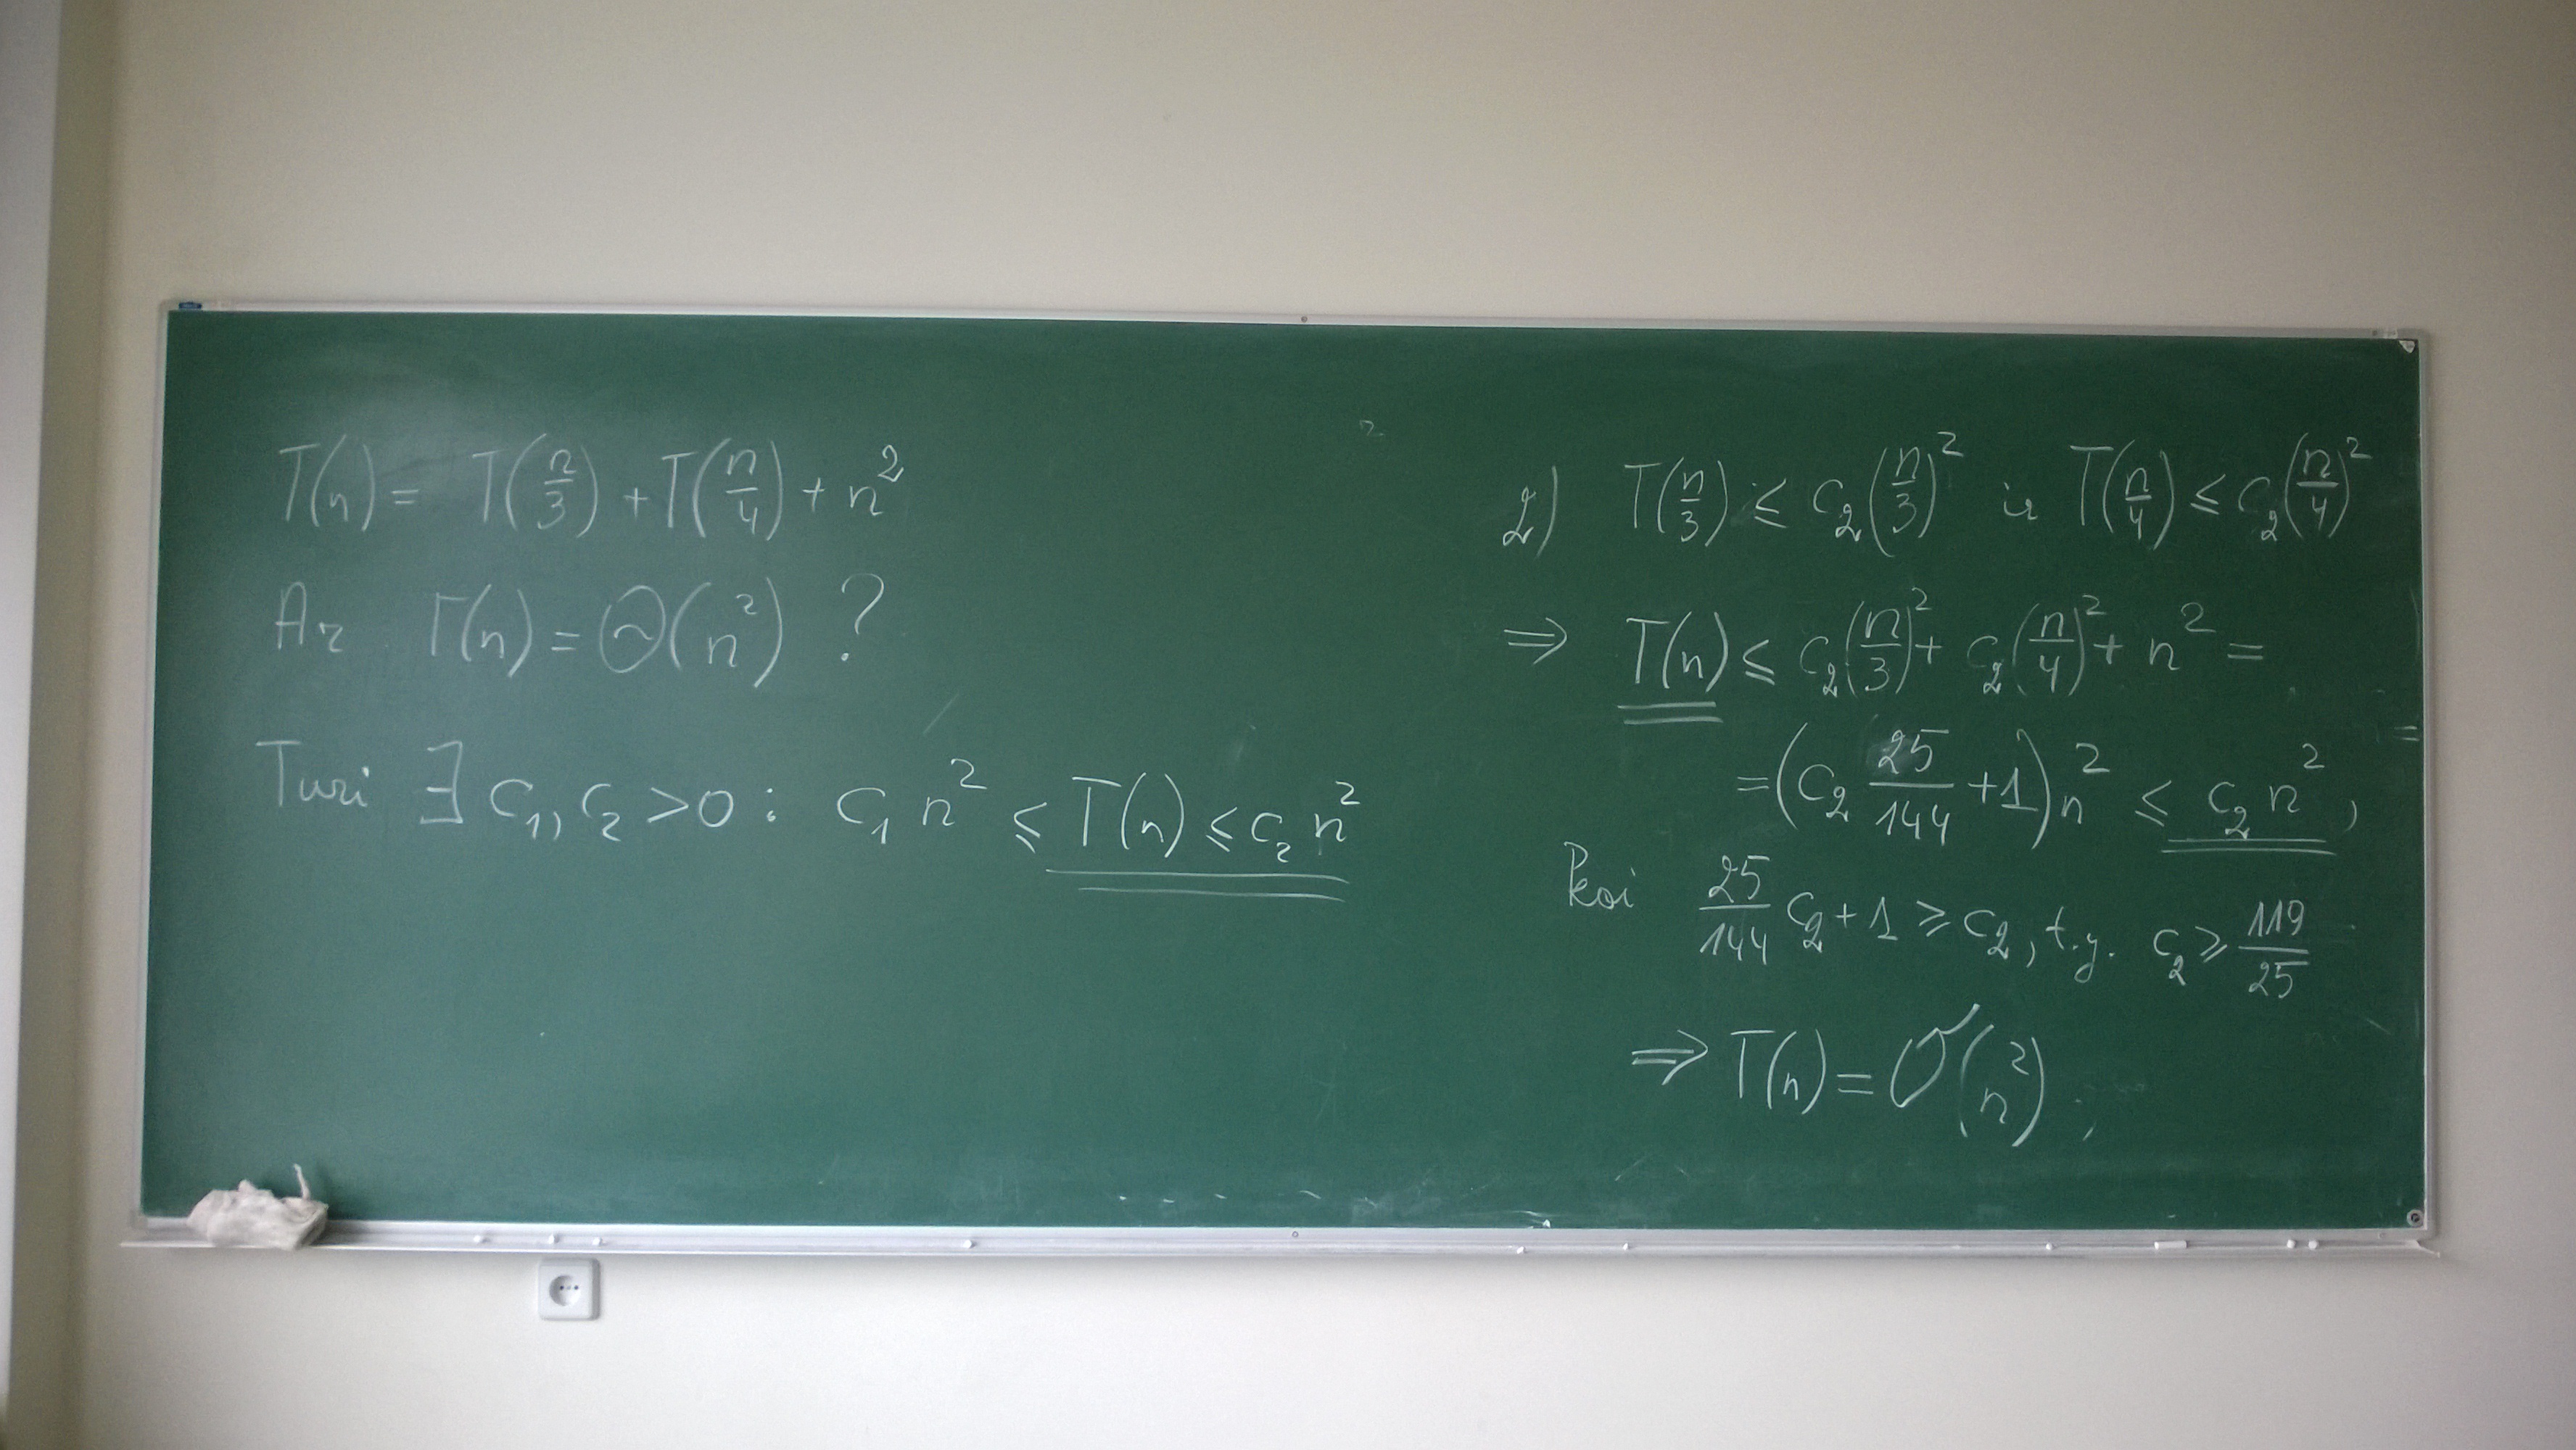 T(n) = T(n/3) + T(n/4) + n²
Ar T(n) = Θ(n²) ?
Turi ∃ c₁, c₂ > 0 : c₁ n² ≤ T(n) ≤ c₂ n²
2) T(n/3) ≤ c₂(n/3)² ir T(n/4) ≤ c₂(n/4)²
⇒ T(n) ≤ c₂(n/3)² + c₂(n/4)² + n² =
= (c₂ 25/144 + 1) n² ≤ c₂ n² ,
kai 25/144 c₂ + 1 ≥ c₂, t.y. c₂ ≥ 119/25
⇒ T(n) = O(n²) ;